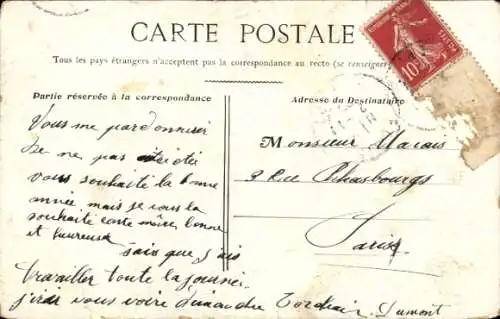 CARTE POSTALE
Tous les pays étrangers n'acceptent pas la correspondance au recto (se renseigner
Partie réservée à la correspondance
Vous me pardonnerer
de ne pas
vous souhaité la bonne
année mais je vous la
souhaité toute même bonne
et heureuse
sais que j'ais
travailler toute la journé
j'irai vous voire dimanche
Dumont
Adresse du Destinataire
Monsieur Marais
3 Rue Phasbourgs
Paris
10